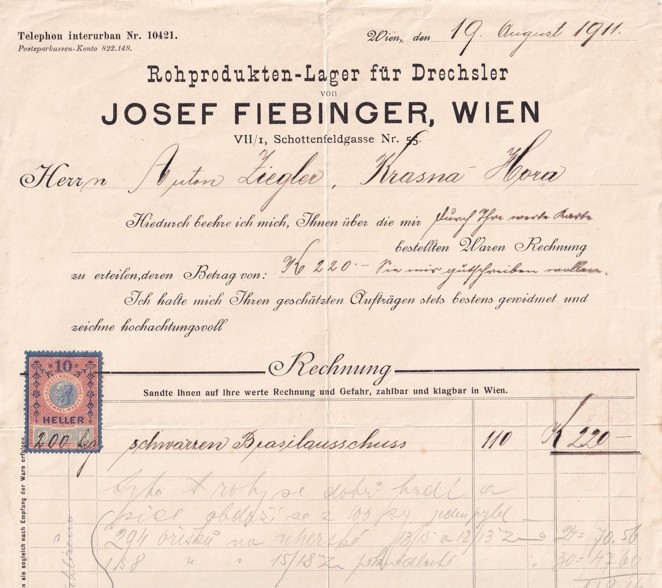 Telephon interurban Nr. 10421.
Postsparkassen-Konto 822.149.
Wien, den 19. August 1911.
Rohprodukten-Lager für Drechsler
von
JOSEF FIEBINGER, WIEN
VII/1, Schottenfeldgasse Nr. 55.
Herrn Anton Ziegler, Krasná Hora
Hiedurch beehre ich mich, Ihnen über die mir durch Ihre werte Karte
bestellten Waren Rechnung
zu erteilen, deren Betrag von: K 220.- Sie mir gutschreiben wollen.
Ich halte mich Ihren geschätzten Aufträgen stets bestens gewidmet und
zeichne hochachtungsvoll
Rechnung
Sandte Ihnen auf Ihre werte Rechnung und Gefahr, zahlbar und klagbar in Wien.
10
HELLER
200 kg schwarzen Brasilausschuss 110 K 220-
se dobře hodí a
294 oříšků na uherské 13/15 a 12/13 2= 70.56
158 " " 15/18 30= 47.60
sie sogleich nach Empfang der Ware erfolgen